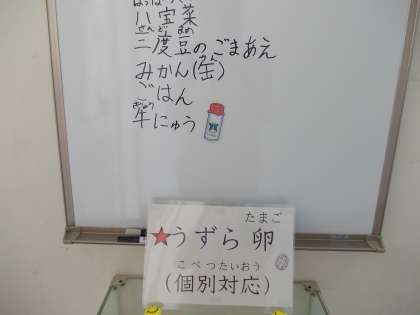 はっぽうさい
八宝菜
さんどまめ
三度豆のごまあえ
みかん(缶)
かん
ごはん
ぎゅう
牛にゅう
たまご
★うずら卵
こべつたいおう
(個別対応)